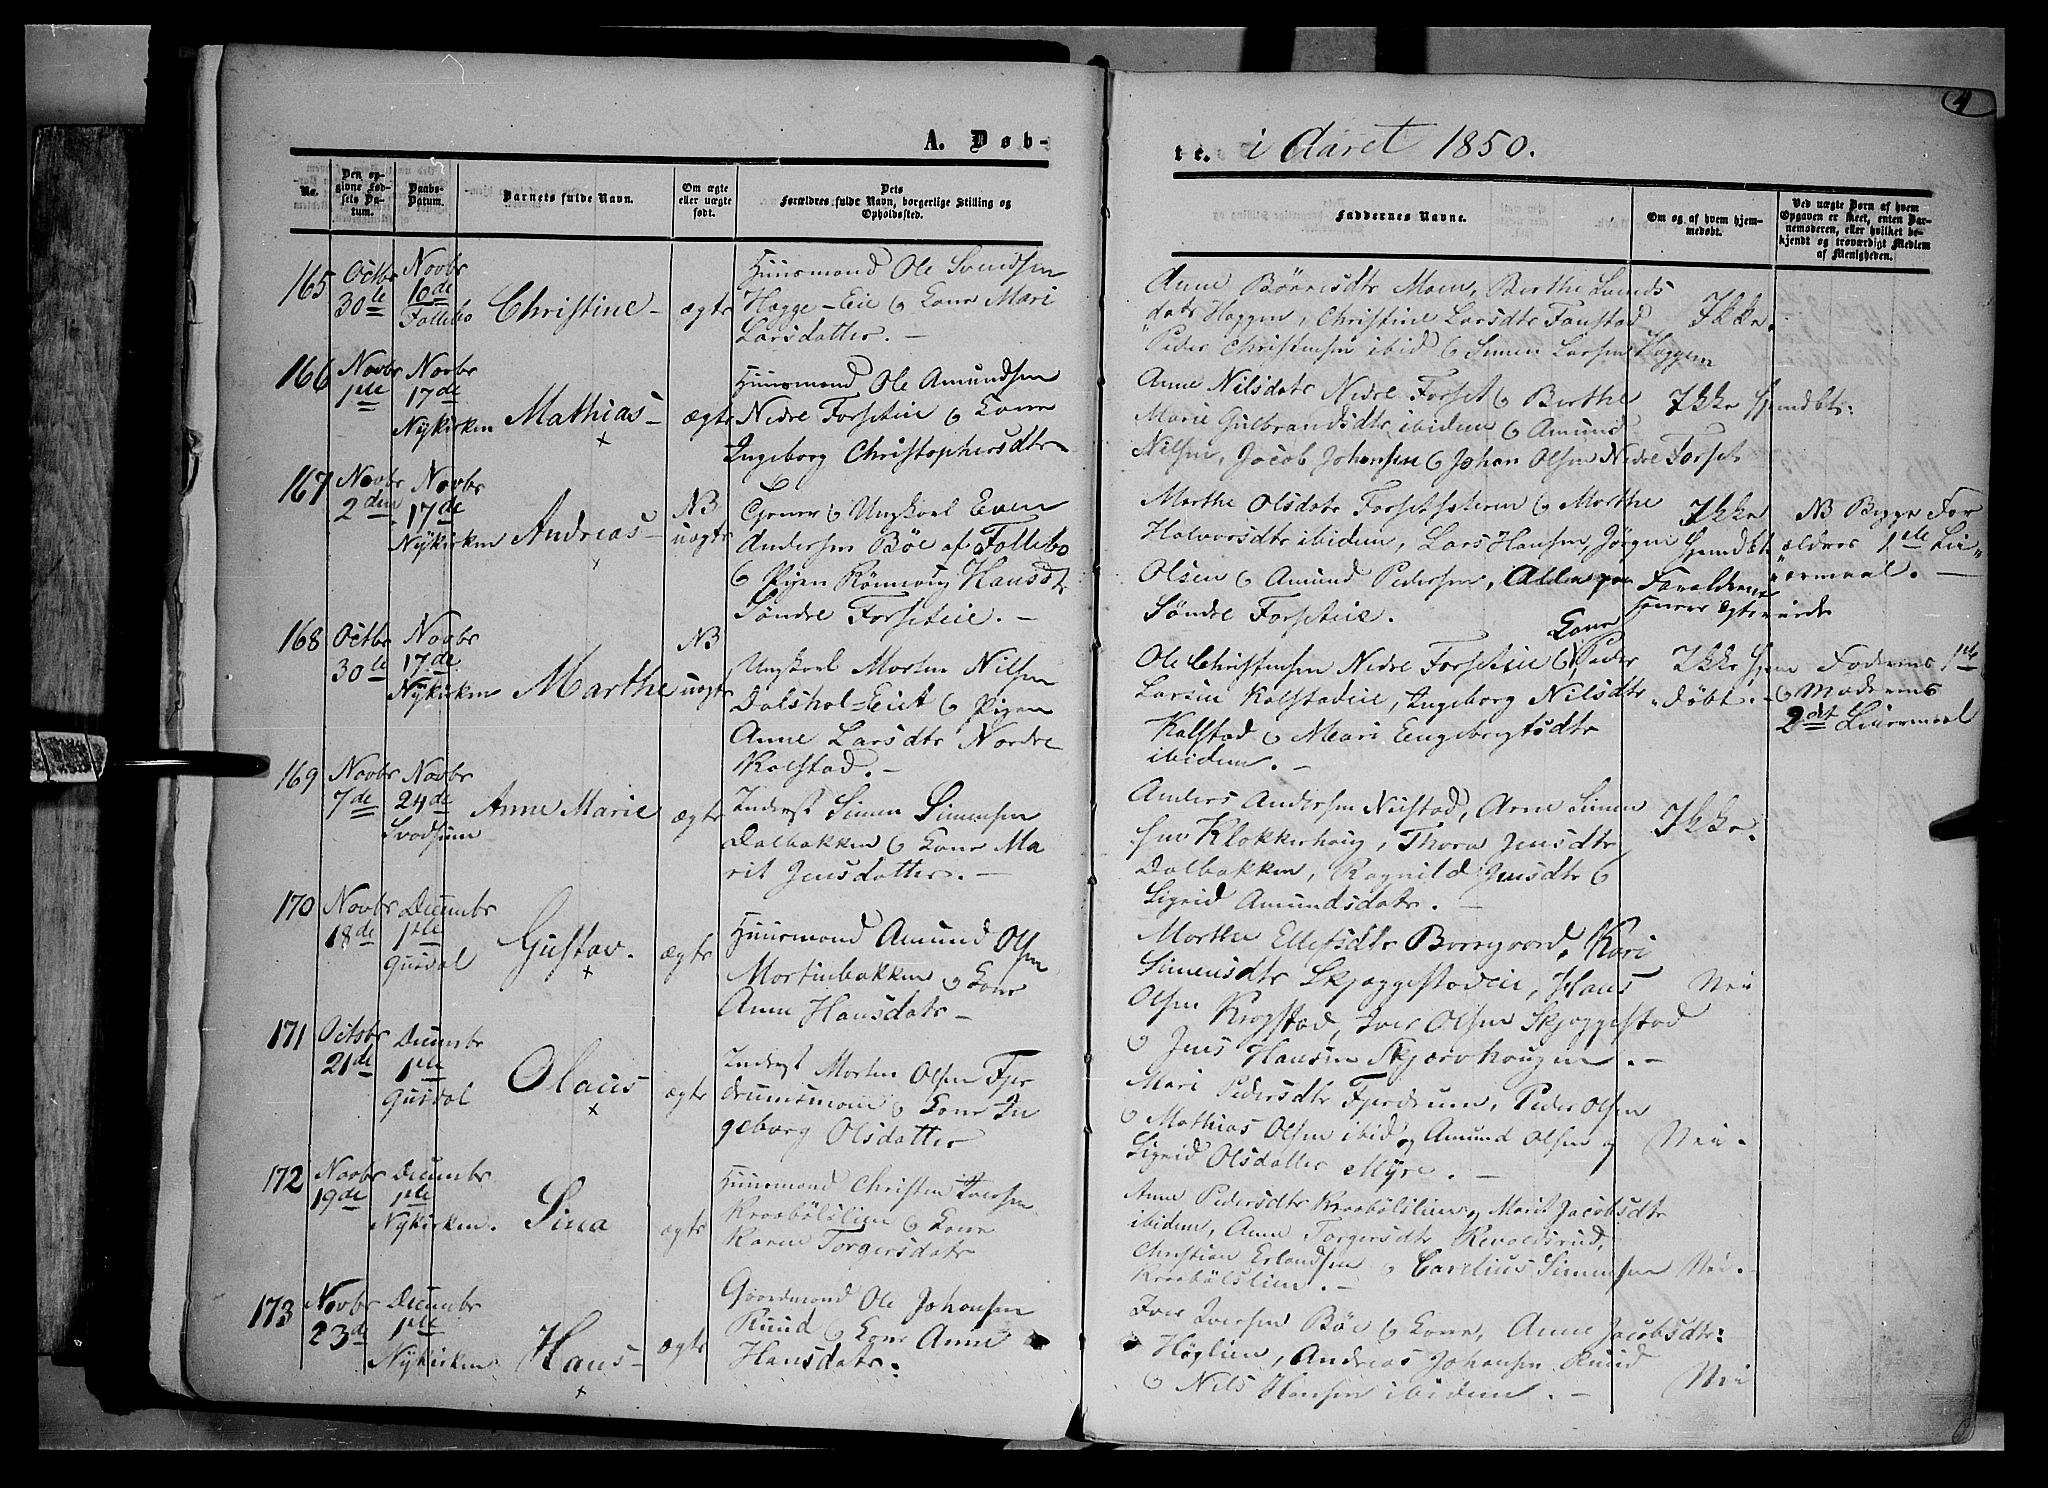 4
A. Døb-
te. i Aaret 1850.
No.
Den opgivne Fødsels Datum.
Daabs-Datum.
Barnets fulde Navn.
Om ægte eller uægte født.
Dets Forældres fulde Navn, borgerlige Stilling og Opholdssted.
Faddernes Navne.
Om og af hvem hjemmedøbt.
Ved uægte Børn af hvem Opgaven er skeet, enten Barnemoderen, eller hvilket bekjendt og troværdigt Medlem af Menigheden.
165
Octbr 30te
Novbr 10de Follebo
Christine
ægte
Huusmand Ole Svendsen
Hagge-Eie & Kone Mari
Larsdatter. —
Anne Børresdtr Moen, Berthe Svends
datr Haggen, Christine Larsdtr Fanstad
Peder Christensen ibid & Simen Larsen Haggen
Ikke.
166
Novbr 1ste
Novbr 17de Nykirken
Mathias
ægte
Huusmand Ole Amundsen
Nedre Forseteie & Kone
Ingeborg Christophersdtr
Anne Nilsdatr Nedre Forset & Berthe
Marie Gulbrandsdtr ibidem & Amund
Nilsen, Jacob Johansen & Johan Olsen Nedre Forset
Ikke hjemdbt:
167
Novbr 2den
Novbr 17de Nykirken
Andreas
NB uægte
Gener Ungkarl Even
Andersen Bøe af Follebo
& Pigen Rønnaug Hansdtr
Søndre Forseteie. —
Marthe Olsdatr Forsetseteren & Marthe
Halvorsdtr ibidem, Lars Hansen, Jørgen
Olsen & Amund Pedersen, Alle paa
Søndre Forseteie.
Ikke hjemdbt
Forældrene senere ægteviede
NB Begge For
ældres 1ste Lei
ermaal. —
168
Octbr 30te
Novbr 17de Nykirken
Marthe
NB uægte
Ungkarl Morten Nilsen
Dalshol-Eiet & Pigen
Anne Larsdtr Nordre
Kalstad. —
Ole Christensen Nedre Forseteie & Kone Peder
Larsen Kalstadeie, Ingeborg Nilsdtr
Kalstad & Mari Engebregtsdtr
ibidem. —
Ikke hjem
døbt. —
Faderens 1ste
& Moderens
2det Leiermaal
169
Novbr 7de
Novbr 24de Svadsum
Anne Marie
ægte
Inderst Simen Simensen
Dalbakken & Kone Ma
rit Jensdatter. —
Anders Andersen Niistad, Arne Simen
sen Klokkerhaug, Thora Jensdtr
Dalbakken, Ragnild Jensdtr &
Sigrid Amundsdatr. —
Ikke.
170
Novbr 18de
Decembr 1ste Gusdal
Gustav.
ægte
Huusmand Amund Olsen
Mortinbakken & Kone
Anne Hansdatr —
Marthe Ellefsdtr Borrgaard, Kari
Simensdtr Skjæggestadeie, Hans
Olsen Krogstad, Iver Olsen Skjæggestad
& Jens Hansen Skjærvhougen. —
Nei
171
Octobr 21de
Decembr 1ste Gusdal
Olaus
ægte
Inderst Morten Olsen Fjer
drumsmoen & Kone In
geborg Olsdatter
Mari Pedersdtr Fjerdrum, Peder Olsen
& Mathias Olsen ibid og Amund Olsen og
Sigrid Olsdatter Myre. —
Nei.
172
Novbr 19de
Decembr 1ste Nykirken.
Sina
ægte
Huusmand Christen Iversen
Kraabølslien & Kone
Karen Torgersdatr
Anne Pedersdtr Kraabølslien, Marit Jacobsdtr
ibidem, Anne Torgersdtr Revoldsrud,
Christian Erlandsen & Carelius Simensen
Kraabølslien. —
Nei.
173
Novbr 23de
Decembr 1ste Nykirken
Hans
ægte
Gaardmand Ole Johansen
Ruud & Kone Anne
Hansdatr.
Iver Iversen Bøe & Kone, Anne Jacobsdtr:
Høglien, Andreas Johansen Ruud
& Nils Hansen ibidem. —
Nei